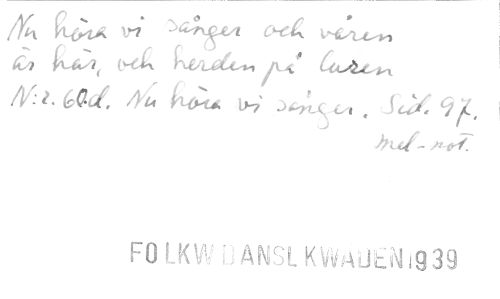 Nu höra vi sånger och våren
är här, och herden på luren
N:r. 60.d. Nu höra vi sånger. Sid. 97.
mel-not.
FOLKW DANSLKWADEN 1939